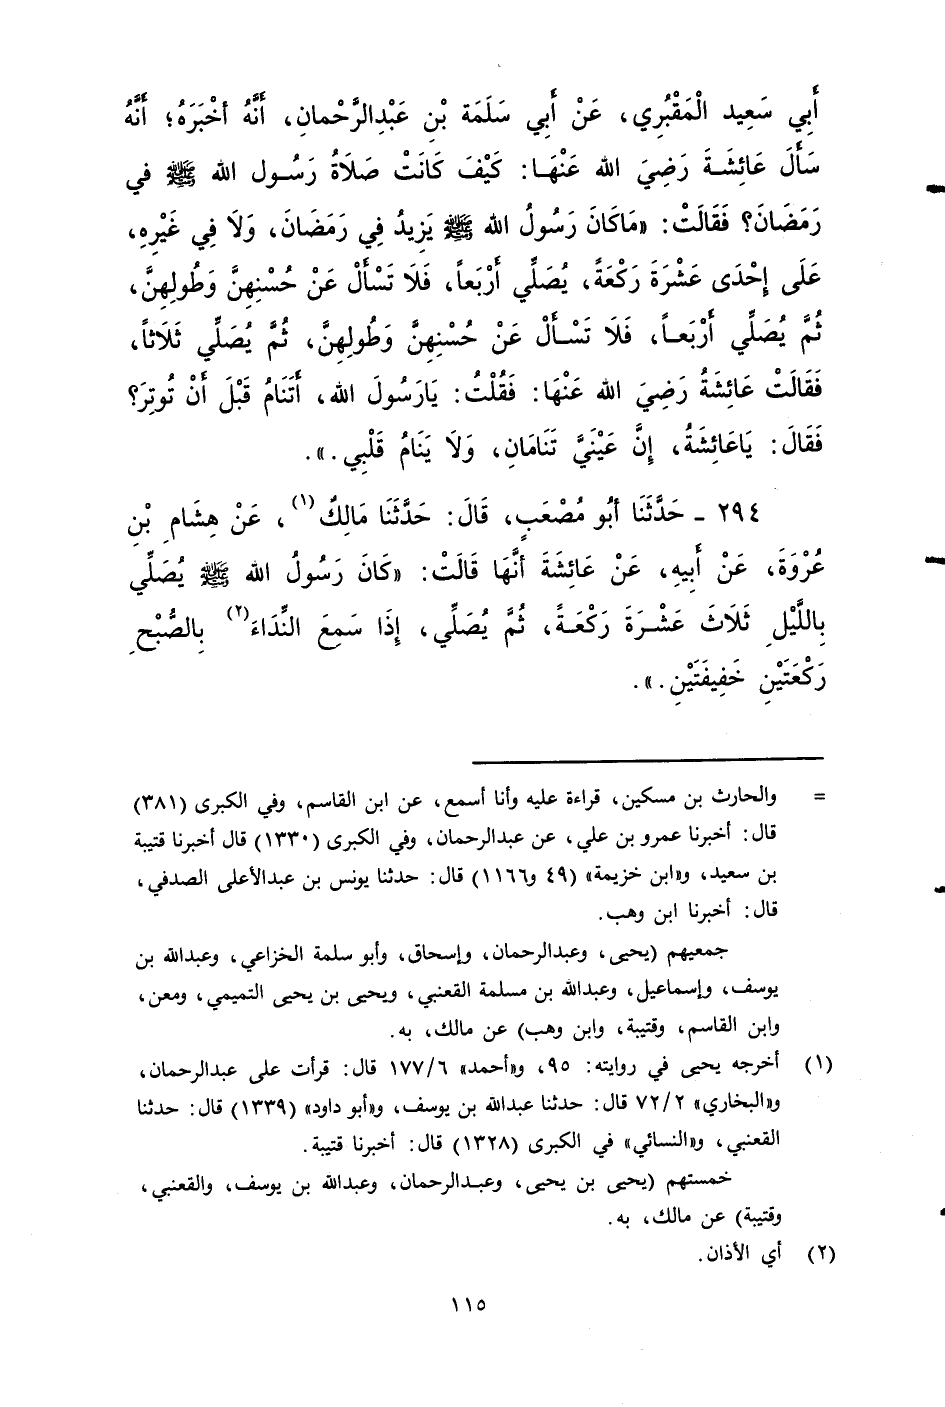 أَبِي سَعِيد الْمَقْبُرِي، عَنْ أَبِي سَلَمَة بْنِ عَبْدِالرَّحْمانِ، أَنَّهُ أخْبَرَهُ؛ أَنَّهُ
سَأَلَ عَائِشَةَ رَضِيَ الله عَنْهَا: كَيْفَ كَانَتْ صَلَاةُ رَسُول الله ﷺ في
رَمَضَانَ؟ فَقَالَتْ: «مَاكَانَ رَسُولُ الله ﷺ يَزِيدُ فِي رَمَضَانَ، وَلَا فِي غَيْرِهِ،
عَلَى إِحْدَى عَشْرَةَ رَكْعَةً، يُصَلِّي أَرْبَعاً، فَلَا تَسْأَلْ عَنْ حُسْنِهِنَّ وَطُولِهِنَّ،
ثُمَّ يُصَلِّي أَرْبَعـاً، فَلَا تَسْأَلْ عَنْ حُسْنِهِنَّ وَطُولِهِنَّ، ثُمَّ يُصَلِّي ثَلَاثاً،
فَقَالَتْ عَائِشَةُ رَضِيَ الله عَنْهَا: فَقُلْتُ: يَارَسُولَ الله، أَتَنَامُ قَبْلَ أَنْ تُوتِرَ؟
فَقَالَ: يَاعَائِشَةُ، إِنَّ عَيْنَيَّ تَنَامَانِ، وَلَا يَنَامُ قَلْبِي.».
٢٩٤ - حَدَّثَنَا أبُو مُصْعَبٍ، قَالَ: حَدَّثَنَا مَالِكٌ(١)، عَنْ هِشَامِ بْنِ
عُرْوَةَ، عَنْ أَبِيهِ، عَنْ عَائِشَةَ أنَّهَا قَالَتْ: «كَانَ رَسُولُ الله ﷺ يُصَلِّي
بِاللَّيْلِ ثَلَاثَ عَشْرَةَ رَكْعَةً، ثُمَّ يُصَلِّي، إِذَا سَمِعَ النِّدَاءَ(٢) بِالصُّبْحِ
رَكْعَتَيْنِ خَفِيفَتَيْنِ.».
= والحارث بن مسكين، قراءة عليه وأنا أسمع، عن ابن القاسم، وفي الكبرى (٣٨١)
قال: أخبرنا عمرو بن علي، عن عبدالرحمان، وفي الكبرى (١٣٣٠) قال أخبرنا قتيبة
بن سعيد، و«ابن خزيمة» (٤٩ و١١٦٦) قال: حدثنا يونس بن عبدالأعلى الصدفي،
قال: أخبرنا ابن وهب.
جمعيهم (يحيى، وعبدالرحمان، وإسحاق، وأبو سلمة الخزاعي، وعبدالله بن
يوسف، وإسماعيل، وعبدالله بن مسلمة القعنبي، ويحيى بن يحيى التميمي، ومعن،
وابن القاسم، وقتيبة، وابن وهب) عن مالك، به.
(١) أخرجه يحيى في روايته: ٩٥، و«أحمد» ١٧٧/٦ قال: قرأت على عبدالرحمان،
و«البخاري» ٧٢/٢ قال: حدثنا عبدالله بن يوسف، و«أبو داود» (١٣٣٩) قال: حدثنا
القعنبي، و«النسائي» في الكبرى (١٣٢٨) قال: أخبرنا قتيبة.
خمستهم (يحيى بن يحيى، وعبدالرحمان، وعبدالله بن يوسف، والقعنبي،
وقتيبة) عن مالك، به.
(٢) أي الأذان.
١١٥